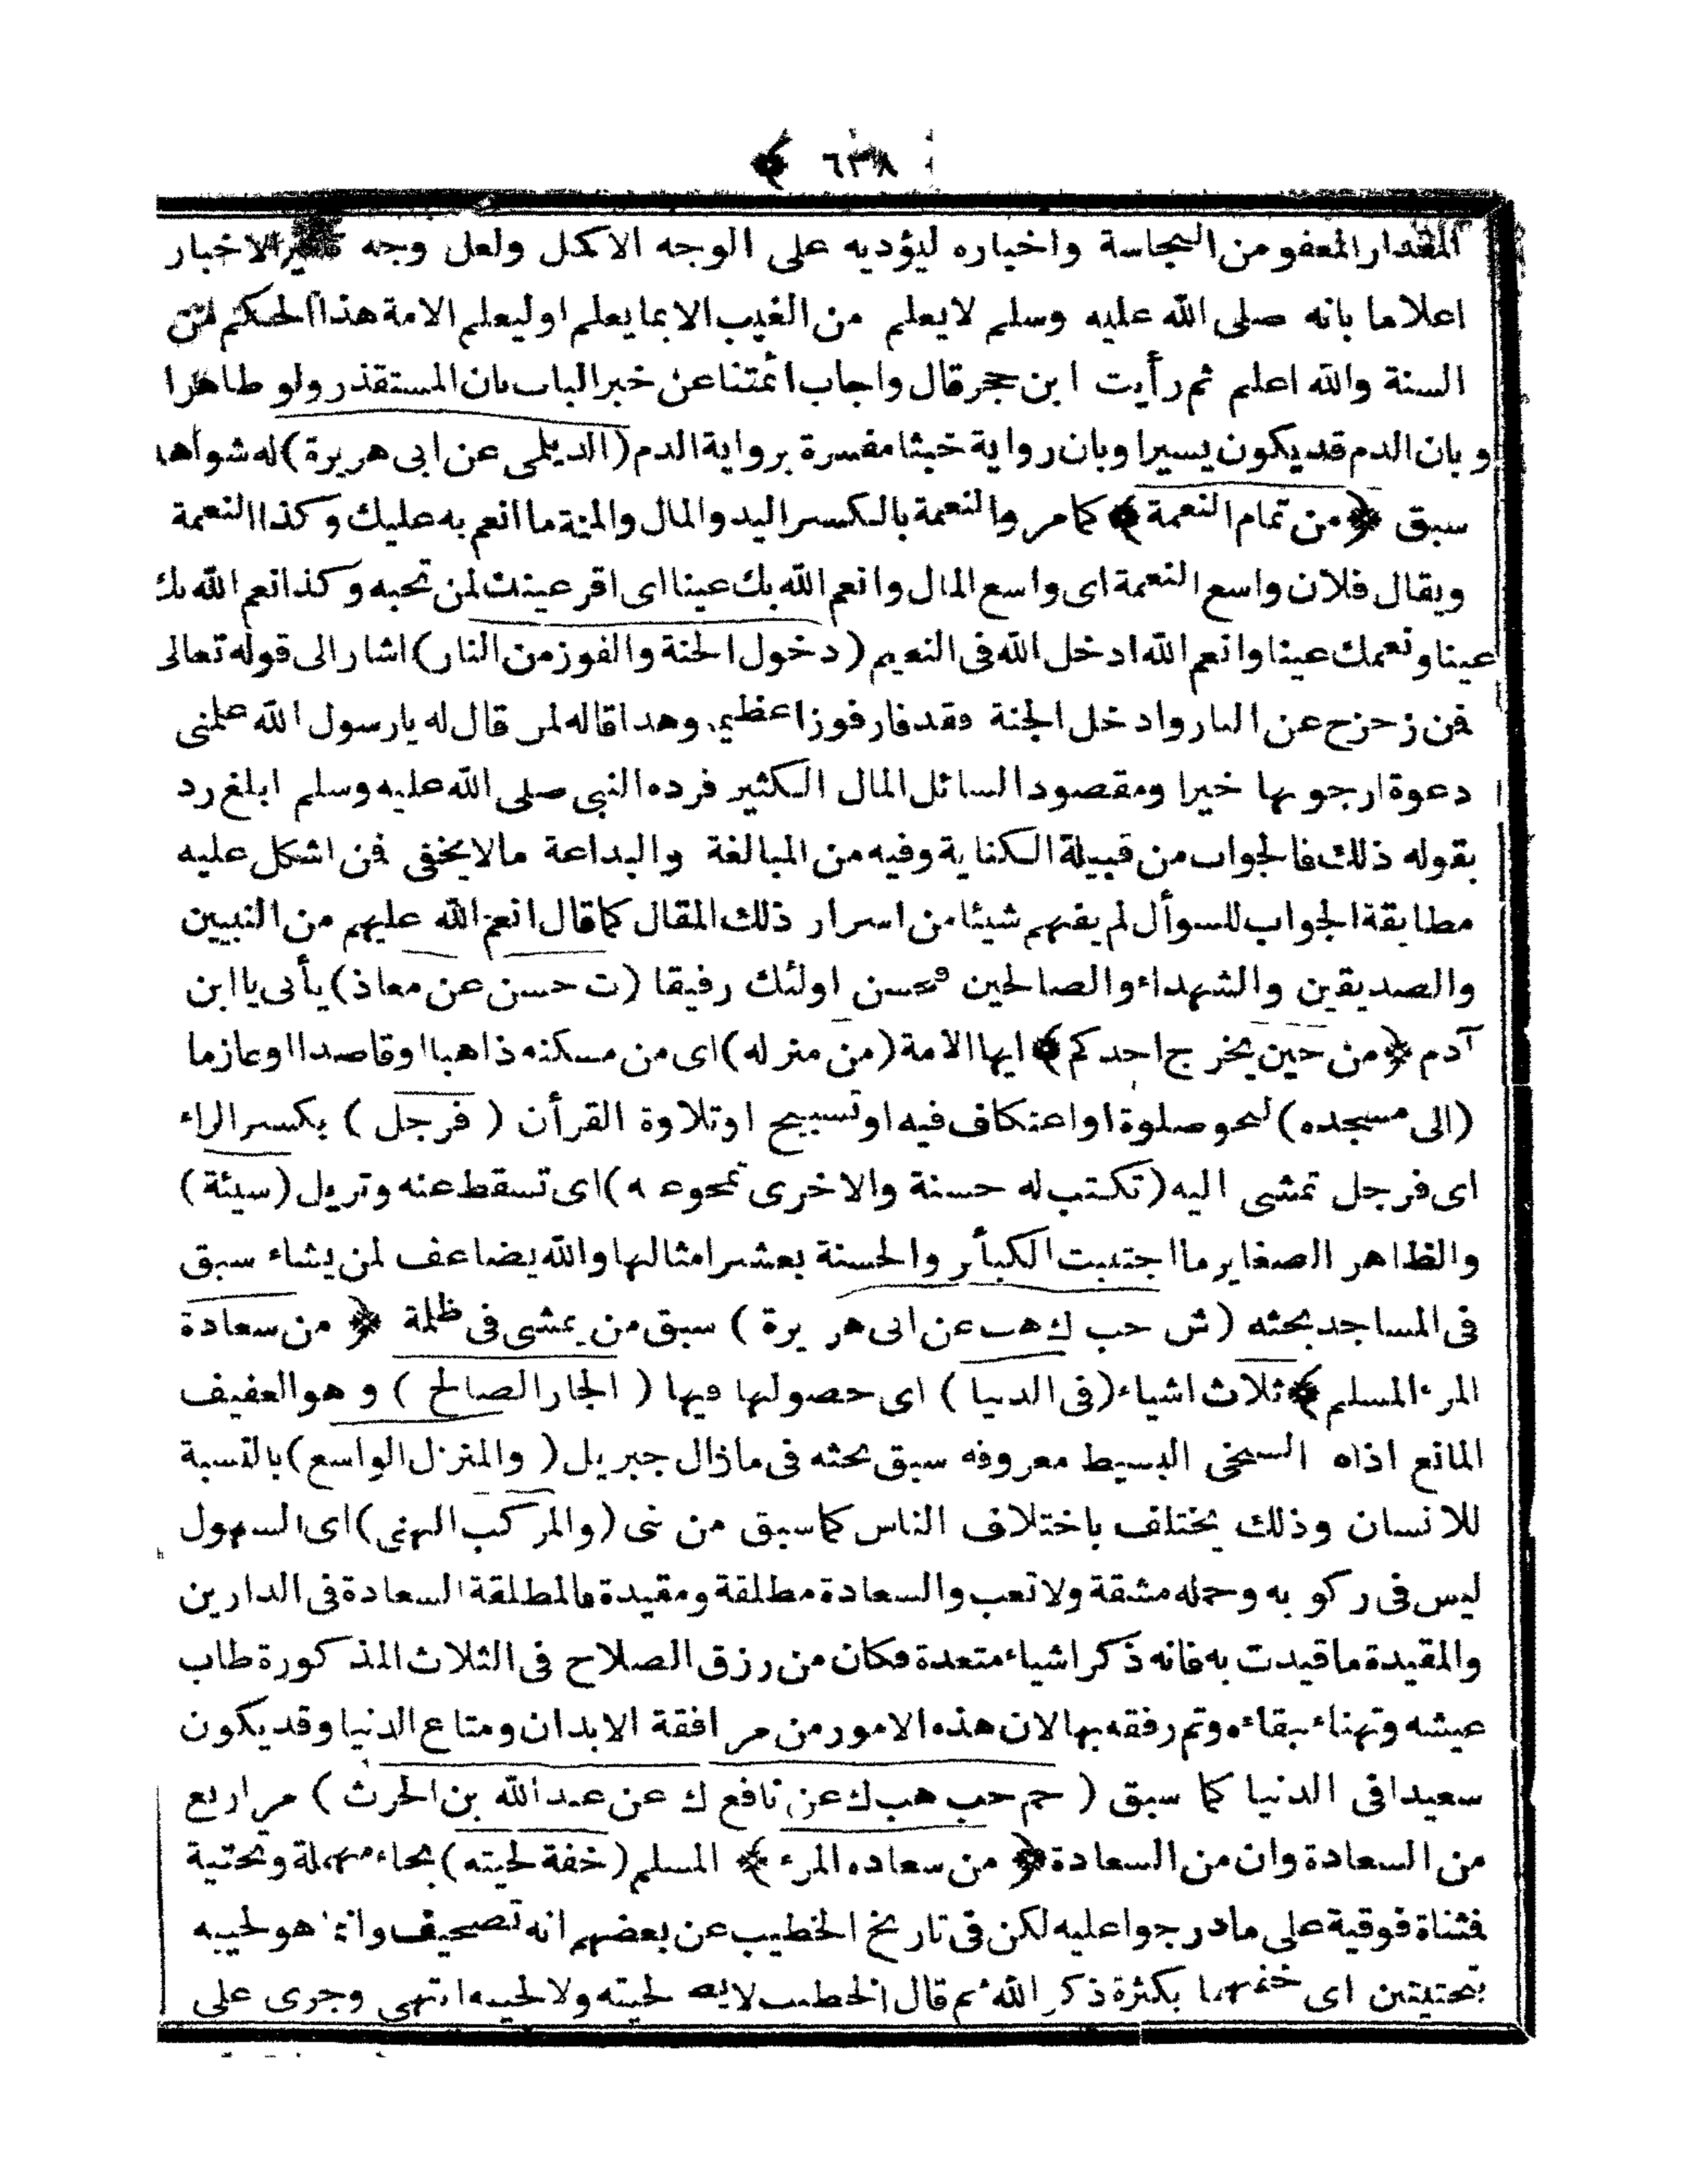 ﴿ ٦٣٨ ﴾
المقدار المعفو من النجاسة واخباره ليؤديه على الوجه الاكمل ولعل وجه تأخير الاخبار
اعلاما بانه صلى الله عليه وسلم لايعلم من الغيب الا بما يعلم او ليعلم الامة هذا الحكم من
السنة والله اعلم ثم رأيت ابن حجر قال واجاب ائمتنا عن خبر الباب بان المستقذر ولو طاهرا
و بان الدم قد يكون يسيرا وبان رواية خبثا مفسرة برواية الدم (الديلمى عن ابى هريرة) له شواهد
سبق ﴿ من تمام النعمة ﴾ كما مر والنعمة بالكسر اليد والمال والمنة ما انعم به عليك وكذا النعمة
ويقال فلان واسع النعمة اى واسع المال وانعم الله بك عينا اى اقر عينك لمن تحبه وكذا نعم الله بك
عينا ونعمك عينا وانعم الله ادخل الله فى النعيم (دخول الجنة والفوز من النار) اشار الى قوله تعالى
فمن زحزح عن النار وادخل الجنة فقد فاز فوزا عظيم، وهذا قاله لمن قال له يارسول الله علمنى
دعوة ارجو بها خيرا ومقصود السائل المال الكثير فرده النبى صلى الله عليه وسلم ابلغ رد
بقوله ذلك فالجواب من قبيلة الكناية وفيه من المبالغة والبداعة مالا يخفى فمن اشكل عليه
مطابقة الجواب للسوأل لم يفهم شيئا من اسرار ذلك المقال كما قال انعم الله عليهم من النبيين
والصديقين والشهداء والصالحين وحسن اولئك رفيقا (ت حسن عن معاذ) يأتى يا ابن
آدم ﴿ من حين يخرج احدكم ﴾ ايها الامة (من منزله) اى من مسكنه ذاهبا او قاصدا او عازما
(الى مسجده) لنحو صلوة او اعتكاف فيه او تسبيح او تلاوة القرأن (فرجل) بكسر الراء
اى فرجل تمشى اليه (تكتب له حسنة والاخرى تمحو عنه) اى تسقط عنه وتزيل (سيئة)
والظاهر الصغاير ما اجتنبت الكبأر والحسنة بعشر امثالها والله يضاعف لمن يشاء سبق
فى المساجد بحثه (ش حب ك هب عن ابى هريرة) سبق من يمشى فى ظلمة ﴿ من سعادة
المرء المسلم ﴾ ثلاث اشياء (فى الدنيا) اى حصولها فيها (الجار الصالح) و هو العفيف
المانع اذاه السخى البسيط معروفه سبق بحثه فى مازال جبريل (والمنزل الواسع) بالنسبة
للانسان وذلك يختلف باختلاف الناس كما سبق من نى (والمركب الهنى) اى السهول
ليس فى ركوبه وحمله مشقة ولا تعب والسعادة مطلقة ومقيدة فالمطلقة السعادة فى الدارين
والمقيدة ما قيدت به فانه ذكر اشياء متعدة فكان من رزق الصلاح فى الثلاث المذكورة طاب
عيشه وتهناء ببقاءه وتم رفقه بها لان هذه الامور من مرافقة الابدان ومتاع الدنيا وقد يكون
سعيدا فى الدنيا كما سبق (حم حب هب ك عن نافع ك عن عبد الله بن الحرث) مر اربع
من السعادة وان من السعادة ﴿ من سعاده المرء ﴾ المسلم (خفة لحيته) بحاء مهملة وتحتية
فثناة فوقية على ما درجوا عليه لكن فى تاريخ الخطيب عن بعضهم انه تصحيف وانما هو لحييه
بتحتيتين اى خفتهما بكثرة ذكر الله ثم قال الخطيب لايصح لحيته ولا لحييه انتهى وجرى على